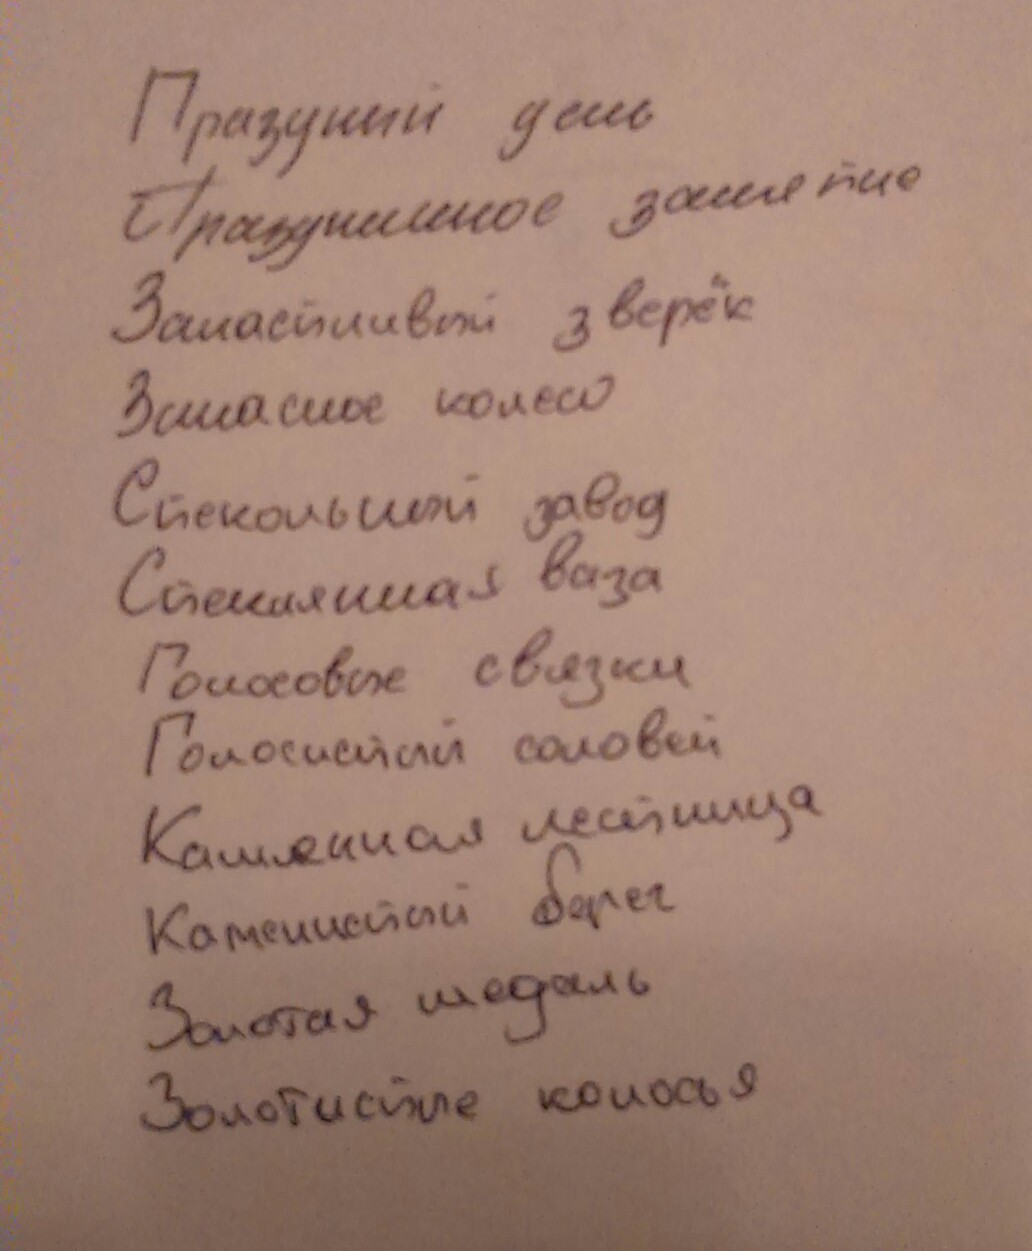 Праздный день
Праздничное занятие
Запасливый зверёк
Запасное колесо
Стекольный завод
Стеклянная ваза
Голосовые связки
Голосистый соловей
Каменная лестница
Каменистый берег
Золотая медаль
Золотистые колосья